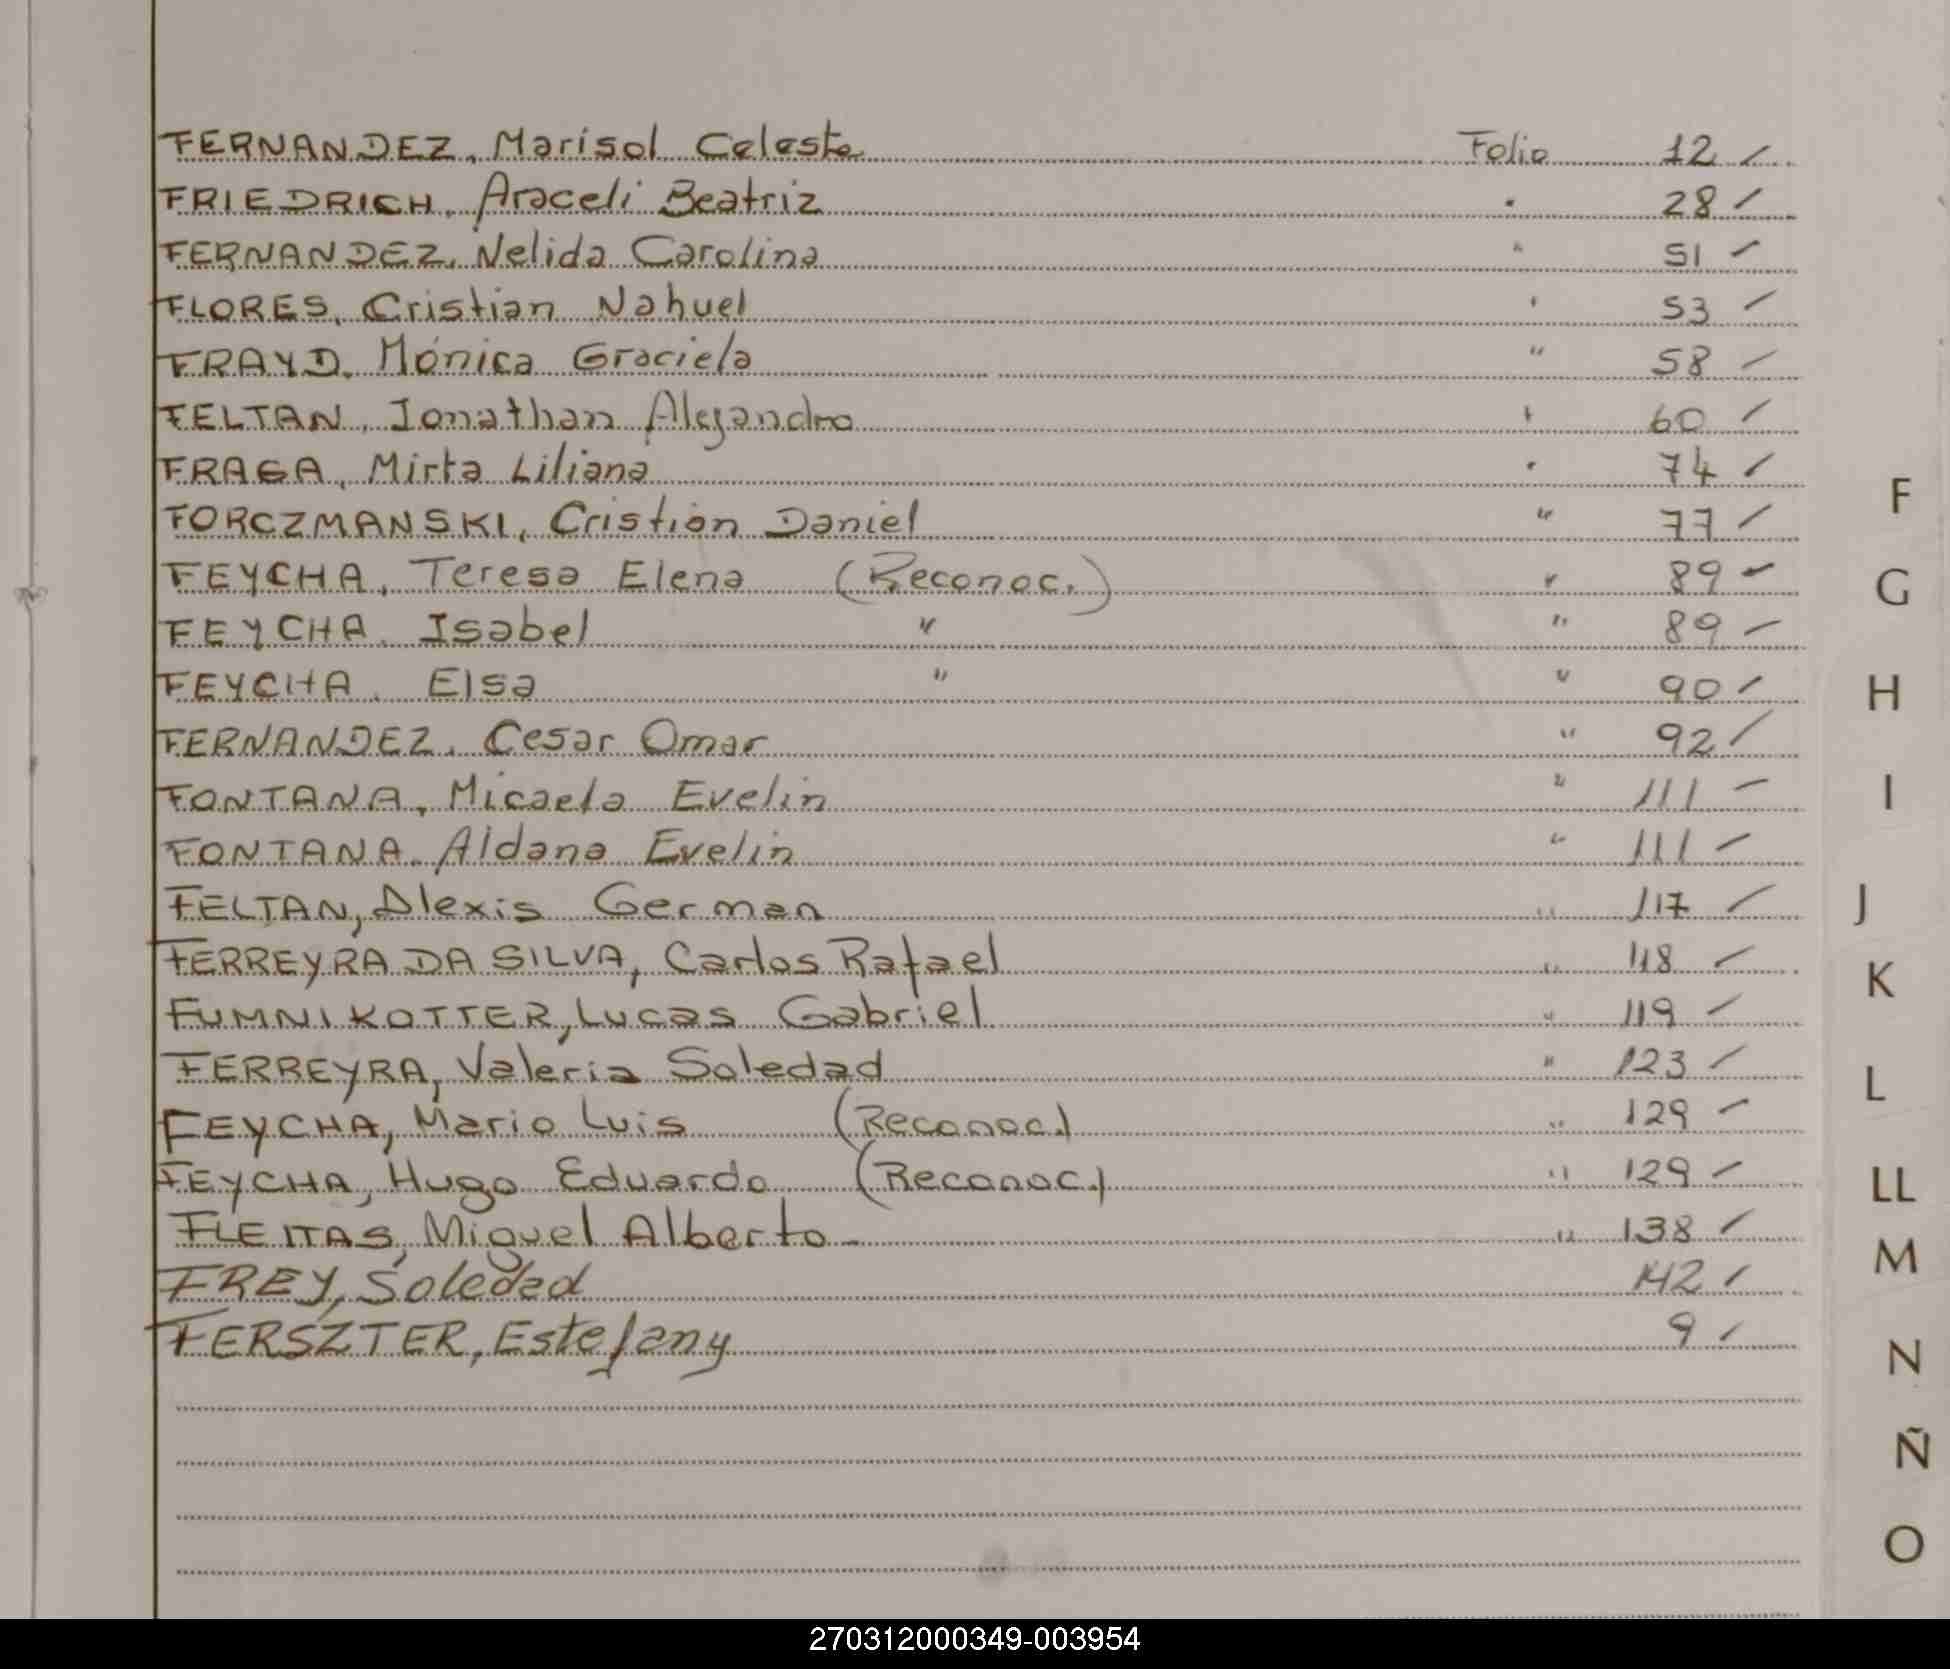 FERNANDEZ, Marisol Celeste Folio 12
FRIEDRICH, Araceli Beatriz " 28
FERNANDEZ, Nelida Carolina " 51
FLORES, Cristian Nahuel " 53
FRAYD, Mónica Graciela " 58
FELTAN, Jonathan Alejandro " 60
FRAGA, Mirta Liliana " 74
FORCZMANSKI, Cristian Daniel " 77
FEYCHA, Teresa Elena (Reconoc.) " 89
FEYCHA, Isabel " " 89
FEYCHA, Elsa " " 90
FERNANDEZ, Cesar Omar " 92
FONTANA, Micaela Evelin " 111
FONTANA, Aldana Evelin " 111
FELTAN, Alexis German " 117
FERREYRA DA SILVA, Carlos Rafael " 118
FUMNIKOTTER, Lucas Gabriel " 119
FERREYRA, Valeria Soledad " 123
FEYCHA, Mario Luis (Reconoc.) " 129
FEYCHA, Hugo Eduardo (Reconoc.) " 129
FLEITAS, Miguel Alberto - " 138
FREY, Soledad 142
FERSZTER, Estefany 9
F
G
H
I
J
K
L
LL
M
N
Ñ
O
270312000349-003954